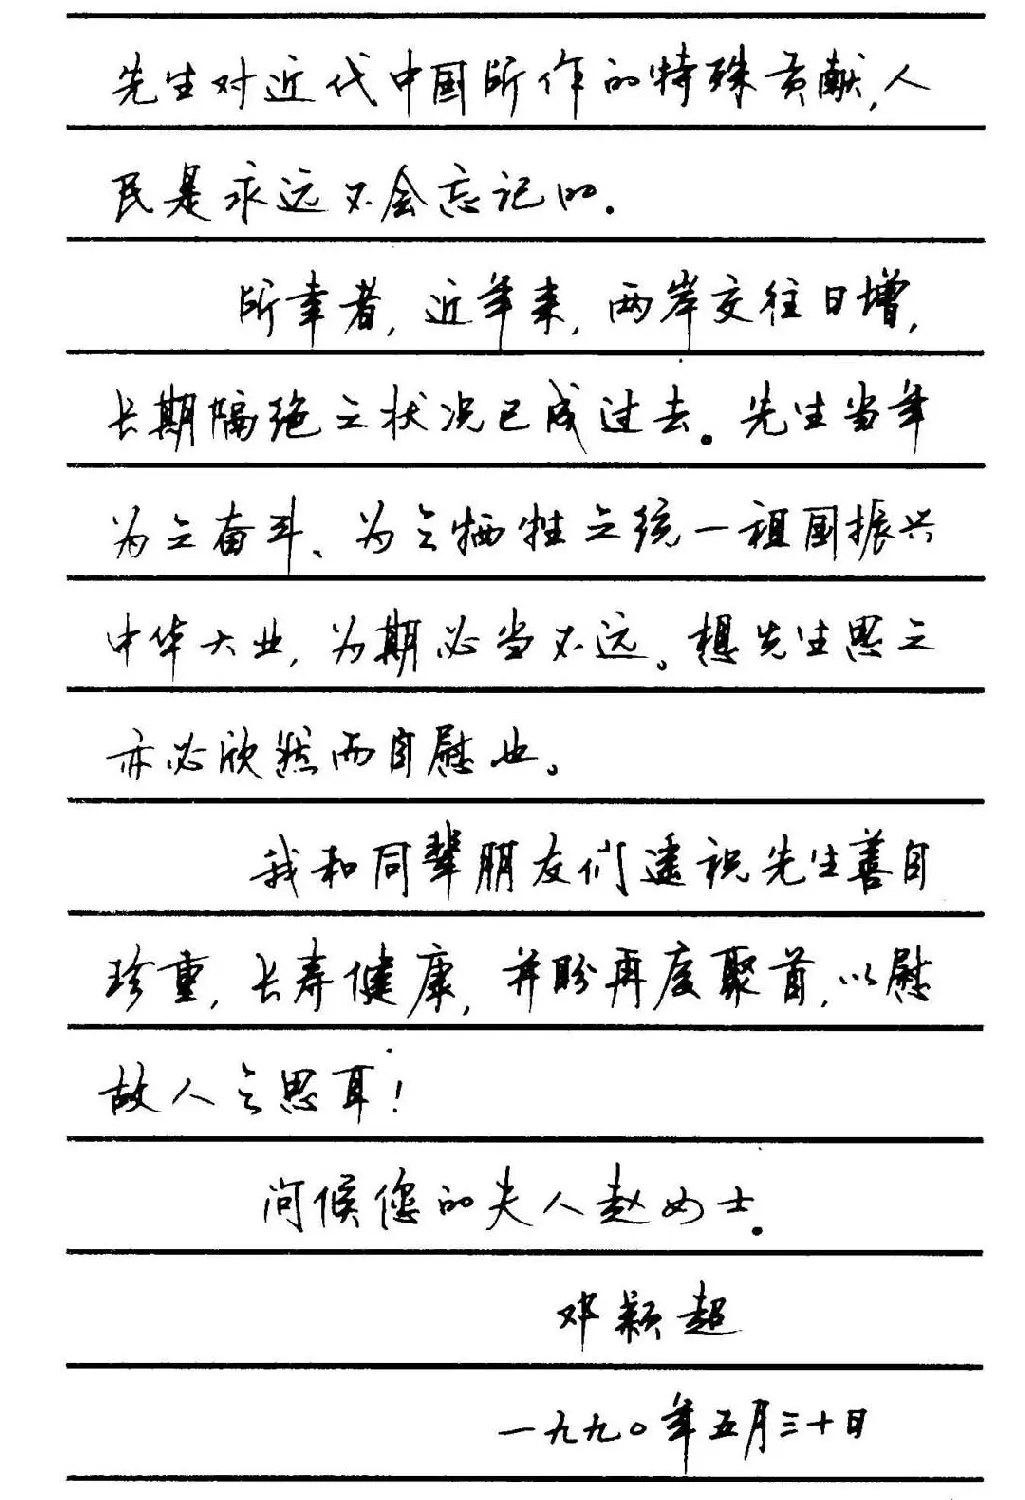 先生对近代中国所作的特殊贡献,人
民是永远不会忘记的.
所幸者,近年来,两岸交往日增,
长期隔绝之状况已成过去。先生当年
为之奋斗、为之牺牲之统一祖国振兴
中华大业,为期必当不远。想先生思之
亦必欣然而自慰也。
我和同辈朋友们遥祝先生善自
珍重,长寿健康,并盼再度聚首,以慰
故人之思耳!
问候您的夫人赵女士。
邓颖超
一九九〇年五月三十日